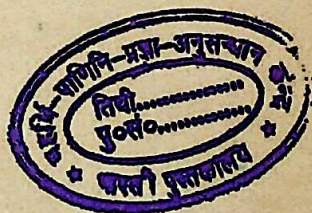 महर्षि-पाणिनि-प्रज्ञा-अनुसन्धान
तिथी..................
पु०सं०...............
★ पुस्तकालय ★